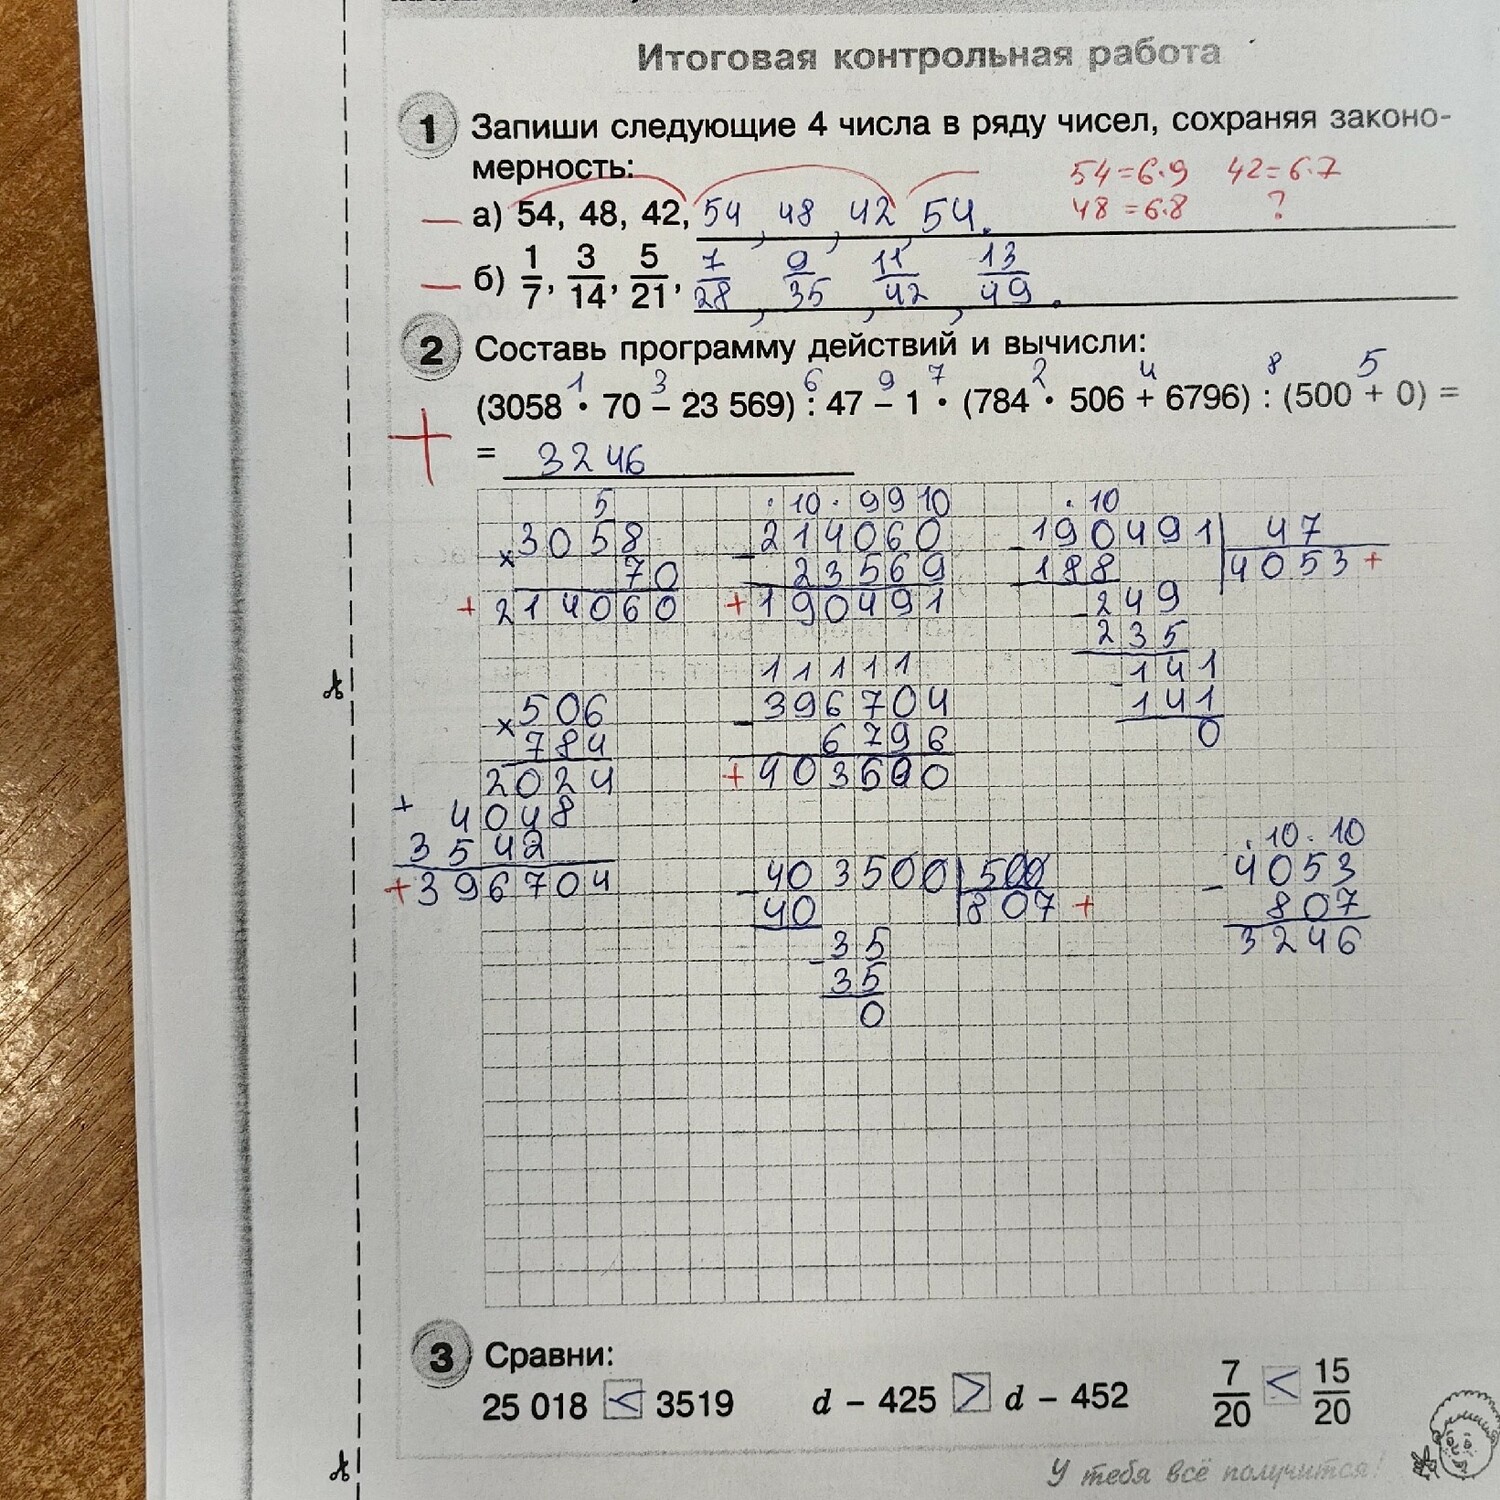 Итоговая контрольная работа
1 Запиши следующие 4 числа в ряду чисел, сохраняя законо-
мерность:
54=6·9 42=6·7
48=6·8 ?
— а) 54, 48, 42, 54, 48, 42, 54.
— б) 1/7, 3/14, 5/21, 7/28, 9/35, 11/42, 13/49.
2 Составь программу действий и вычисли:
1 3 6 9 7 2 4 8 5
(3058 · 70 – 23 569) : 47 – 1 · (784 · 506 + 6796) : (500 + 0) =
+
= 3246
5 · 10 · 9 9 10 · 10
× 3058 – 214060 – 190491 | 47
70 23569 188 4053 +
+ 214060 + 190491 – 249
235
1 1 1 1 1 – 141
× 506 – 396704 141
784 6796 0
2024 + 403500
+ 4048
3542 · 10 · 10
+ 396704 – 403500 | 500 – 4053
40 807 + 807
– 35 3246
35
0
3 Сравни:
25 018 < 3519 d – 425 > d – 452 7/20 < 15/20
У тебя всё получится!